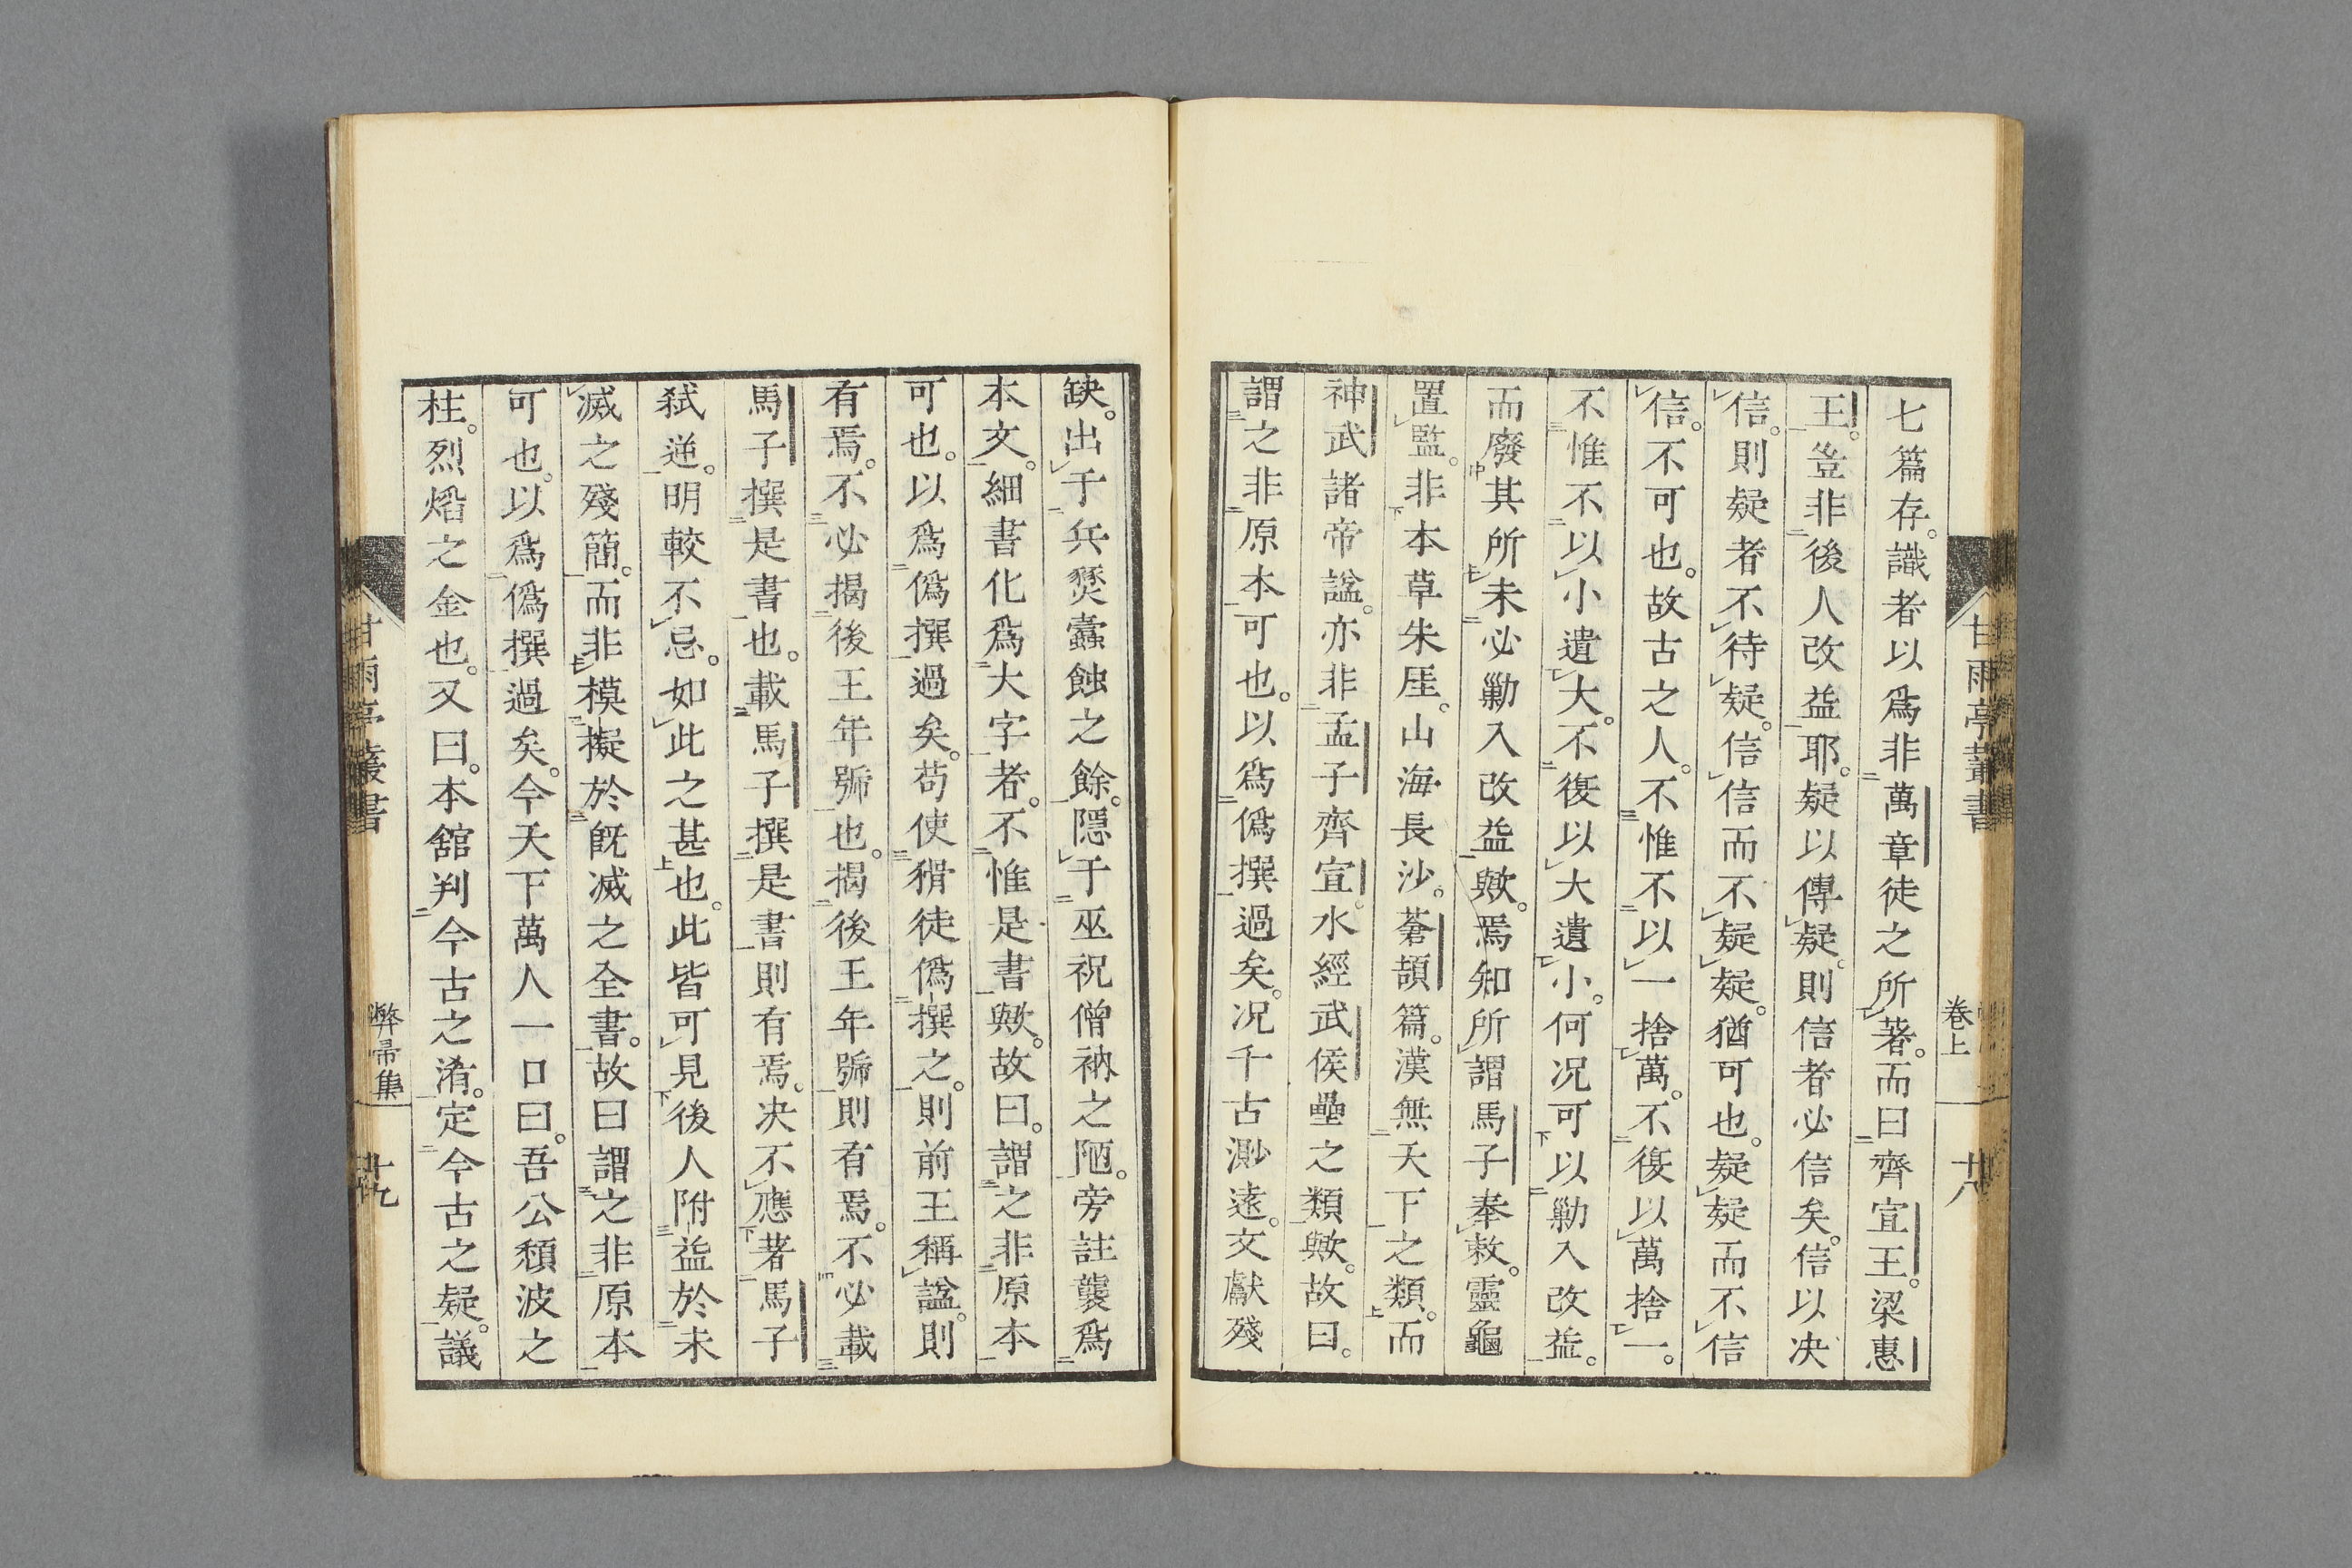 七篇存。識者以爲非萬章徒之所著。而曰齊宣王。梁惠
王。豈非後人改益耶。疑以傳疑。則信者必信矣。信以决
信。則疑者不待疑。信信而不疑疑。猶可也。疑疑而不信
信。不可也。故古之人。不惟不以一捨萬。不復以萬捨一。
不惟不以小遺大。不復以大遺小。何況可以勦入改益。
而廢其所未必勦入改益歟。焉知所謂馬子奉敕。靈龜
置監。非本草朱厓。山海長沙。蒼頡篇。漢兼天下之類。而
神武諸帝謚。亦非孟子齊宣。水經武侯壘之類歟。故曰。
謂之非原本可也。以爲僞撰過矣。况千古渺遠。文獻殘
甘雨亭叢書
卷上
十八
缺。出于兵燹蠧蝕之餘。隱于巫祝僧衲之陋。旁註襲爲
本文。細書化爲大字者。不惟是書歟。故曰。謂之非原本
可也。以爲僞撰過矣。苟使猾徒僞撰之。則前王稱謚。則
有焉。不必揭後王年號也。揭後王年號則有焉。不必載
馬子撰是書也。載馬子撰是書則有焉。决不應著馬子
弑逆。明較不忌。如此之甚也。此皆可見後人附益於未
滅之殘簡。而非模擬於旣滅之全書。故曰謂之非原本
可也。以爲僞撰過矣。今天下萬人一口曰。吾公頽波之
柱。烈熖之金也。又曰。本舘判今古之淆。定今古之疑。議
甘雨亭叢書
弊帚集
十九